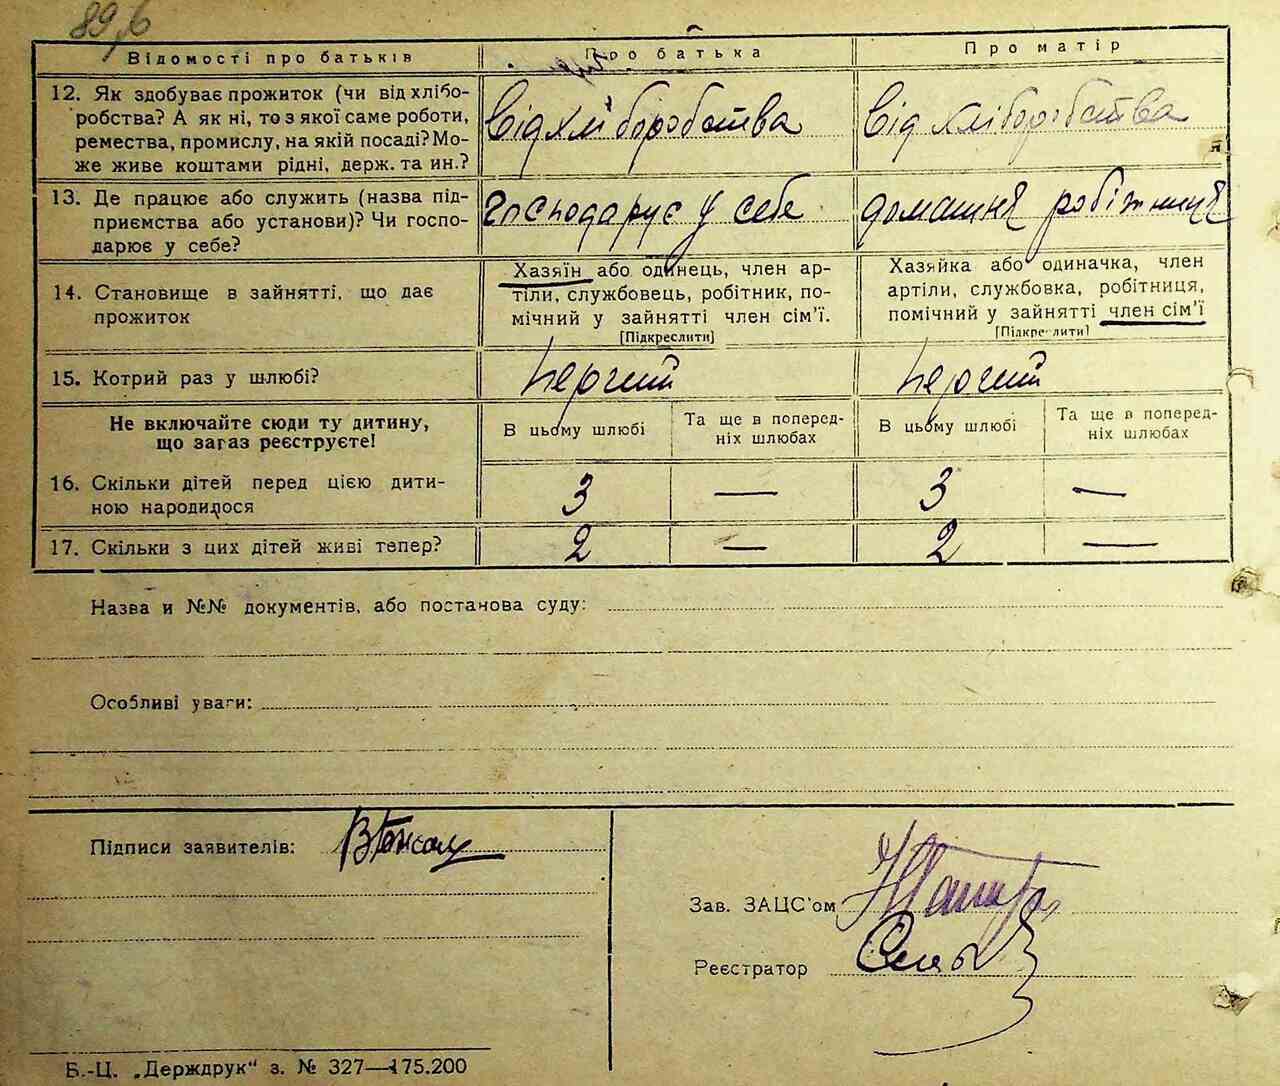 89,6
Відомості про батьків
Про батька
Про матір
12. Як здобуває прожиток (чи від хлібо-
робства? А як ні, то з якої саме роботи,
ремества, промислу, на якій посаді? Мо-
же живе коштами рідні, держ. та ин.?
від хліборобства
від хліборобства
13. Де працює або служить (назва під-
приємства або установи)? Чи госпо-
дарює у себе?
господарує у себе
домашня робітниця
14. Становище в зайнятті, що дає
прожиток
Хазяїн або одинець, член ар-
тіли, службовець, робітник, по-
мічний у зайнятті член сім'ї.
[Підкреслити]
Хазяйка або одиначка, член
артіли, службовка, робітниця,
помічний у зайнятті член сім'ї
[Підкреслити]
15. Котрий раз у шлюбі?
перший
перший
Не включайте сюди ту дитину,
що зараз реєструєте!
В цьому шлюбі
Та ще в поперед-
ніх шлюбах
В цьому шлюбі
Та ще в поперед-
ніх шлюбах
16. Скільки дітей перед цією дити-
ною народилося
3 — 3 —
17. Скільки з цих дітей живі тепер?
2 — 2 —
Назва и №№ документів, або постанова суду:
Особливі уваги:
Підписи заявителів:
Зав. ЗАЦС'ом
Реєстратор
Б.-Ц. „Держдрук" з. № 327—175.200